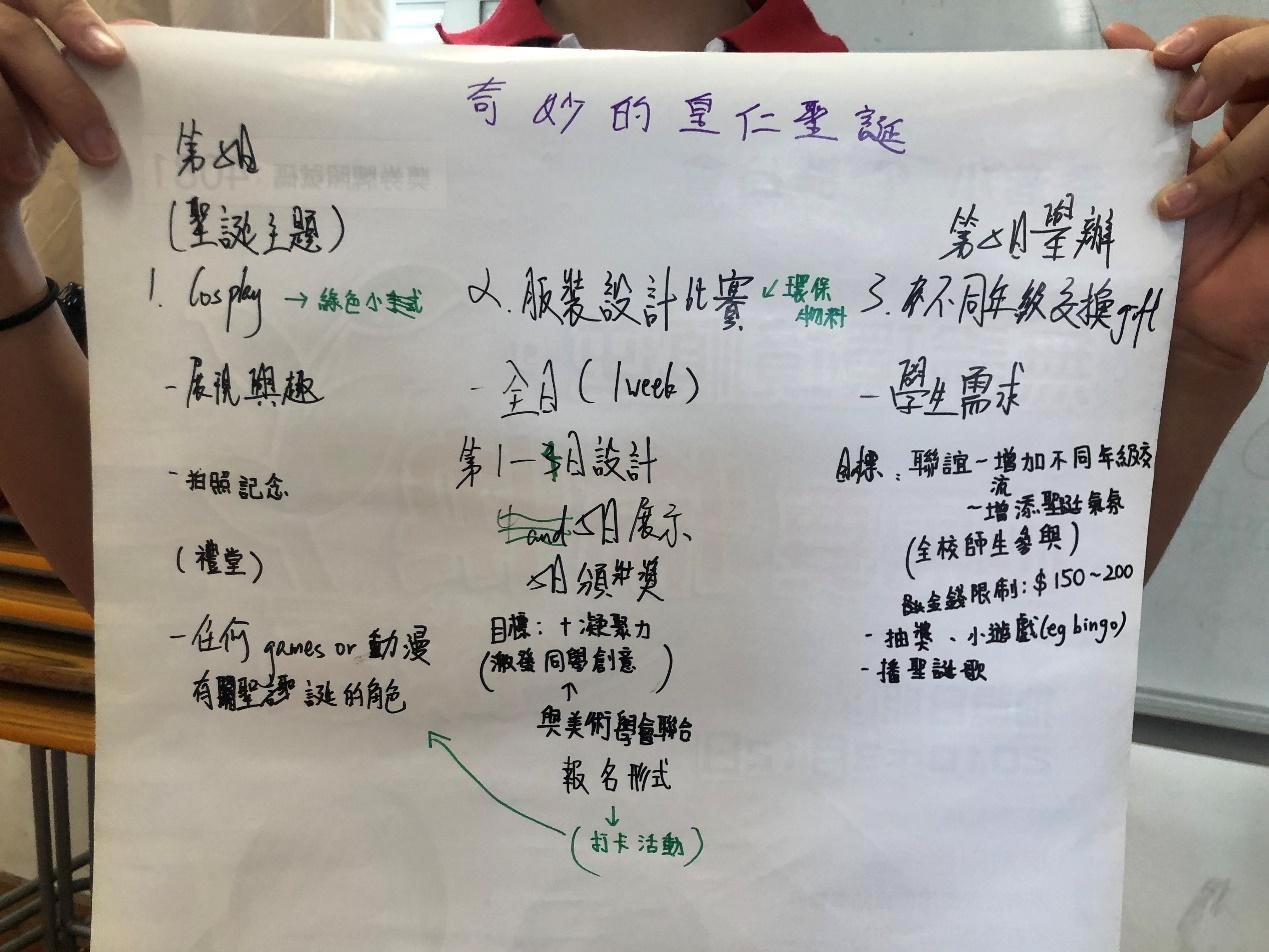 奇妙的皇仁聖誕
第5日
(聖誕主題)
1. Cosplay → 綠色小
- 展視興趣
- 拍照記念
(禮堂)
- 任何 games or 動漫
有關聖誕的角色
2. 服裝設計比賽 ↙ 環保
物料
- 全日 (1week)
第1- 日設計
5日展示
5日頒獎
目標: +凝聚力
(激發同學創意)
↑
與美術學會聯合
報名形式
↓
(打卡活動)
第5日舉辦
3. 在不同年級交換gift
- 學生需求
目標: 聯誼 - 增加不同年級交
流
- 增添聖誕氣氛
(全校師生參與)
金錢限制: $150~200
- 抽獎、小遊戲(eg bingo)
- 播聖誕歌